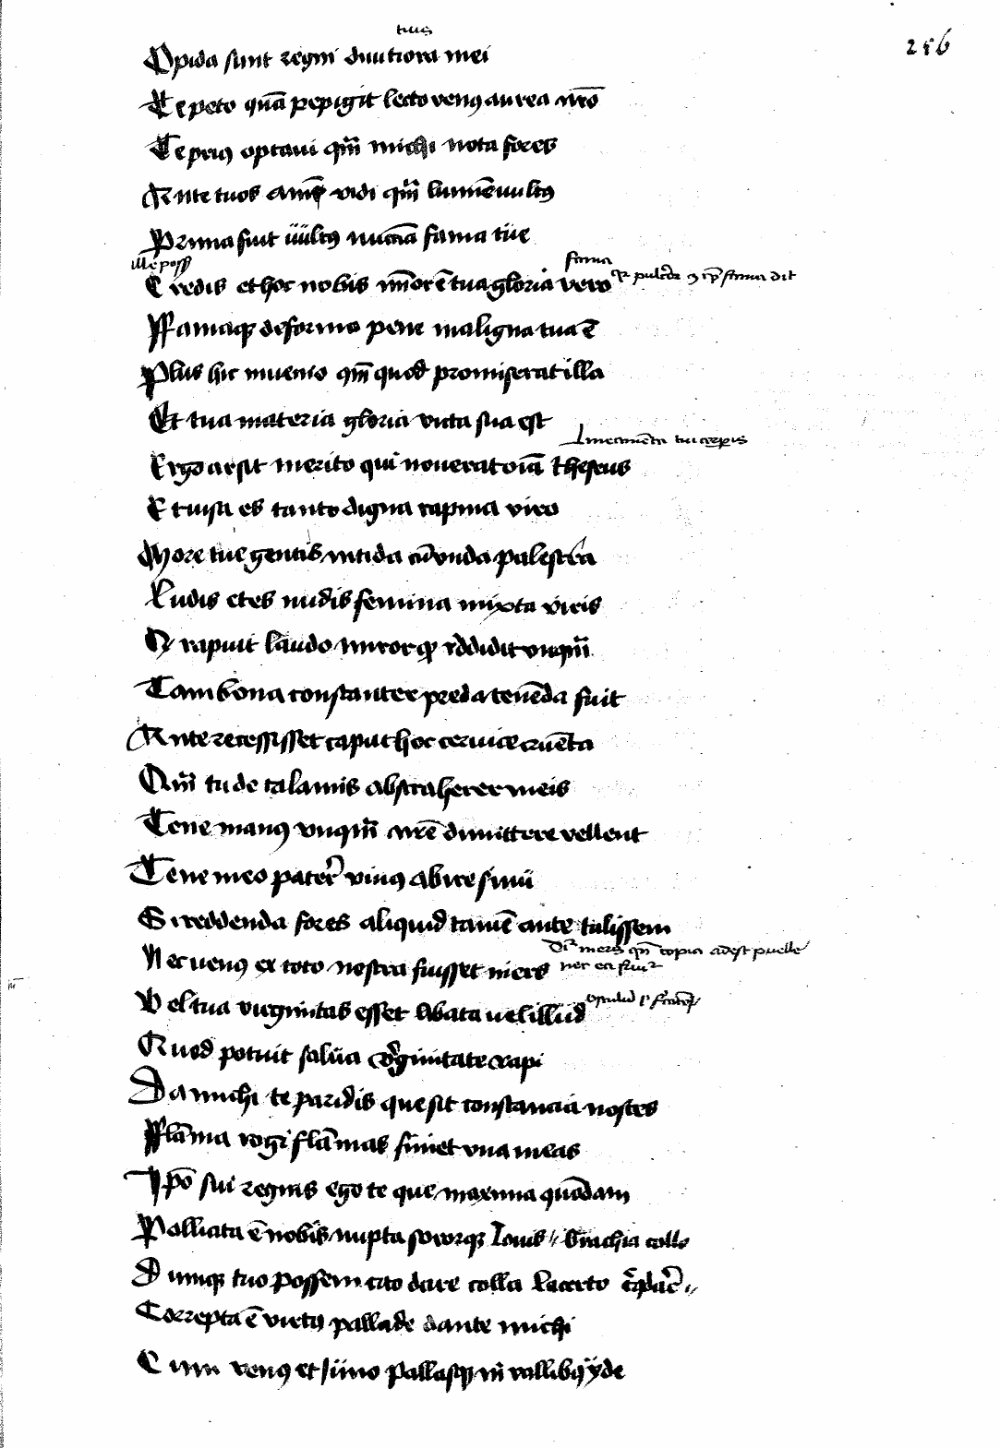 tuis
256
Opida sunt regni diuitiora mei
Te peto quã pepigit lecto venus aurea nr̃o
Te prius optaui qm̃ michi nota fores
Ante tuos animo vidi qm̃ lumine uultus
Prima fuit uultus nuncia fama tui
ille poss
fama
Credis et hoc nobis minor ẽ tua gloria vero
Famaque de forma pene maligna tua ẽ
Plus hic inuenio qm̃ quod promiserat illa
Et tua materia gloria victa sua est
Ergo arsit merito qui nouerat oĩa theseus
Et uisa es tanto digna rapina viro
More tue gentis nitida dũ nuda palestra
Ludis et es nudis femina mixta viris
Q rapuit laudo miror q reddidit vnqm̃
Tam bona constanter preda tenẽda fuit
Ante recessisset caput hoc ceruice cruẽta
Qm̃ tu de talamis abstraherer meis
Tene manus vnqm̃ nr̃e dimittere vellent
Tene meo paterer viuus abire sinu
Si reddenda fores aliquid tamẽ ante tulissem
copia adest puelle
Nec uenus ex toto nostra fuisset iners
nec ea
Vel tua virginitas esset libata uel illud
Quod potuit salua virginitate rapi
Da michi te paridis que sit constancia nosces
Flãma rogi flãmas finiet vna meas
Ipõ sui regnis ego te que maxima quõdam
Pollicita ẽ nobis nupta sororque Iouis // brachia collo
Dumque tuo possem cito dare colla lacerto
Correpta ẽ virtus pallade dante michi
Cum venus et iuno pallasque in vallibus yde